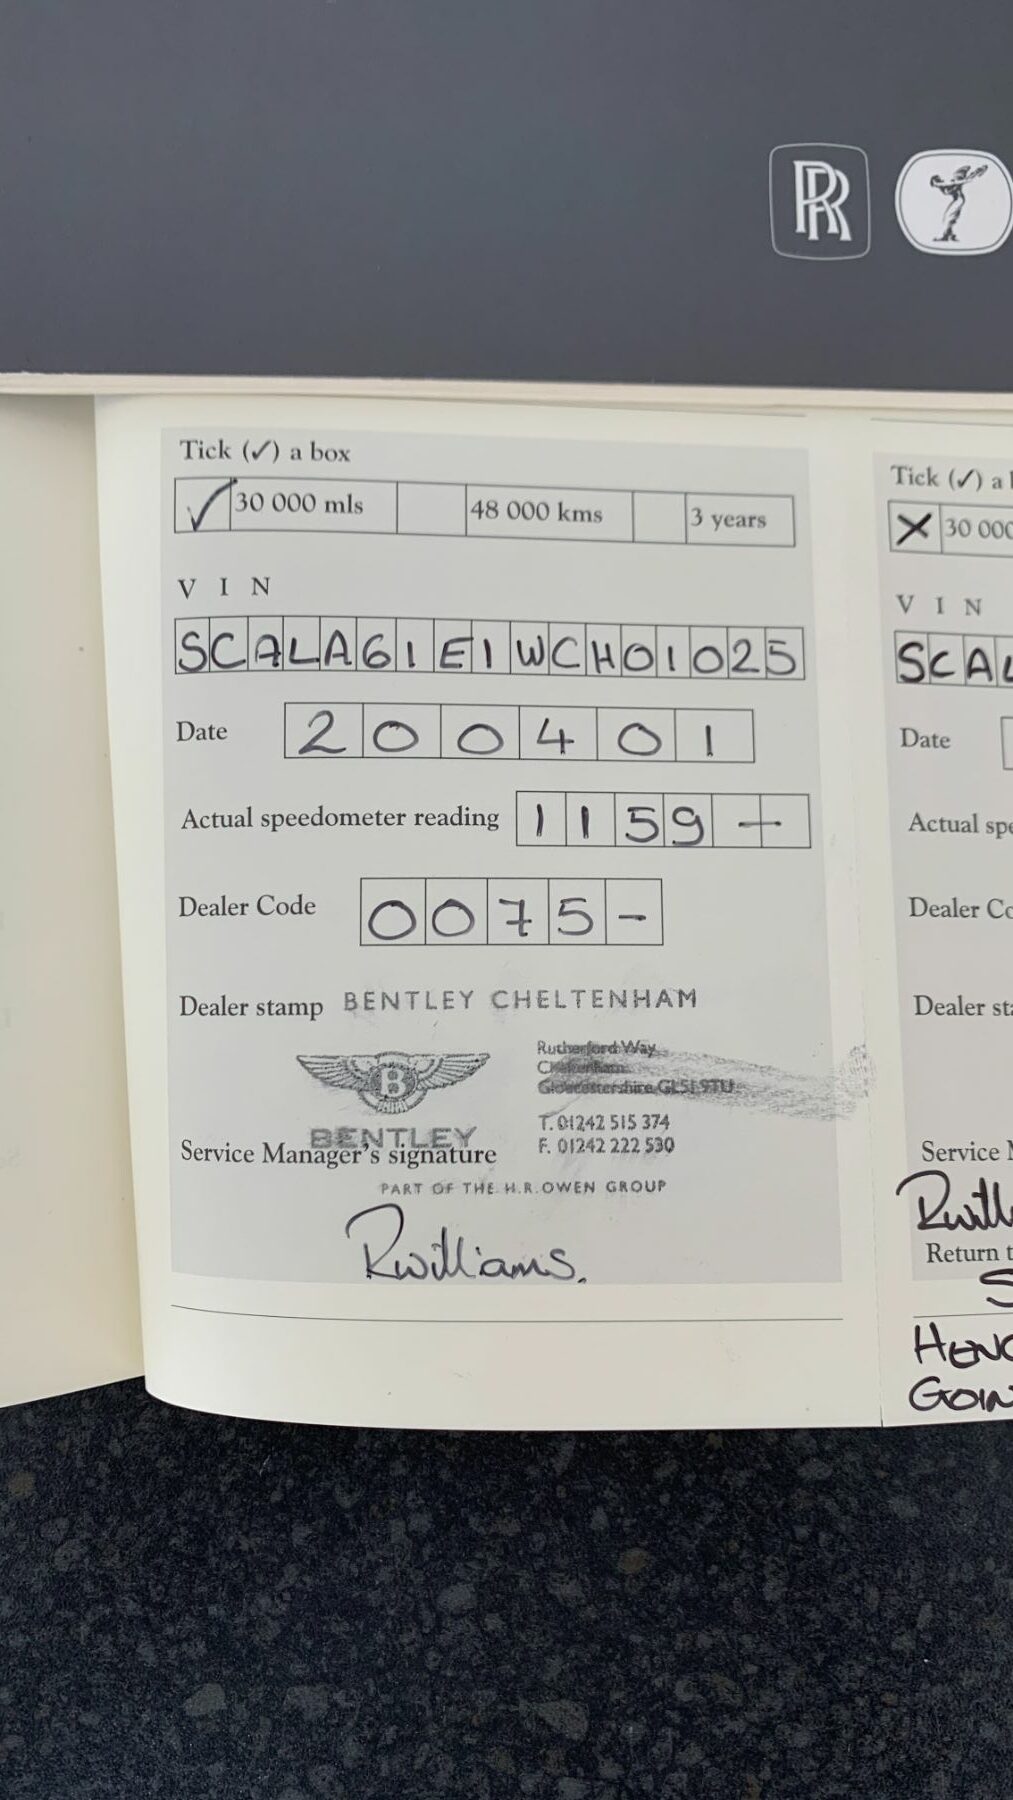 RR
Tick (✓) a box
✓ 30 000 mls 48 000 kms 3 years
V I N
SCALA61E1WCH01025
Date 200401
Actual speedometer reading 1159 +
Dealer Code 0075-
Dealer stamp BENTLEY CHELTENHAM
Rutherford Way
Cheltenham
Gloucestershire GL51 9TU
B
T. 01242 515 374
BENTLEY
F. 01242 222 530
Service Manager's signature
PART OF THE H.R.OWEN GROUP
Rwilliams.
Tick (✓) a
X 30 000
V I N
SCAL
Date
Actual spe
Dealer Co
Dealer sta
Service M
Rwill
Return t
S
HENC
GOIN